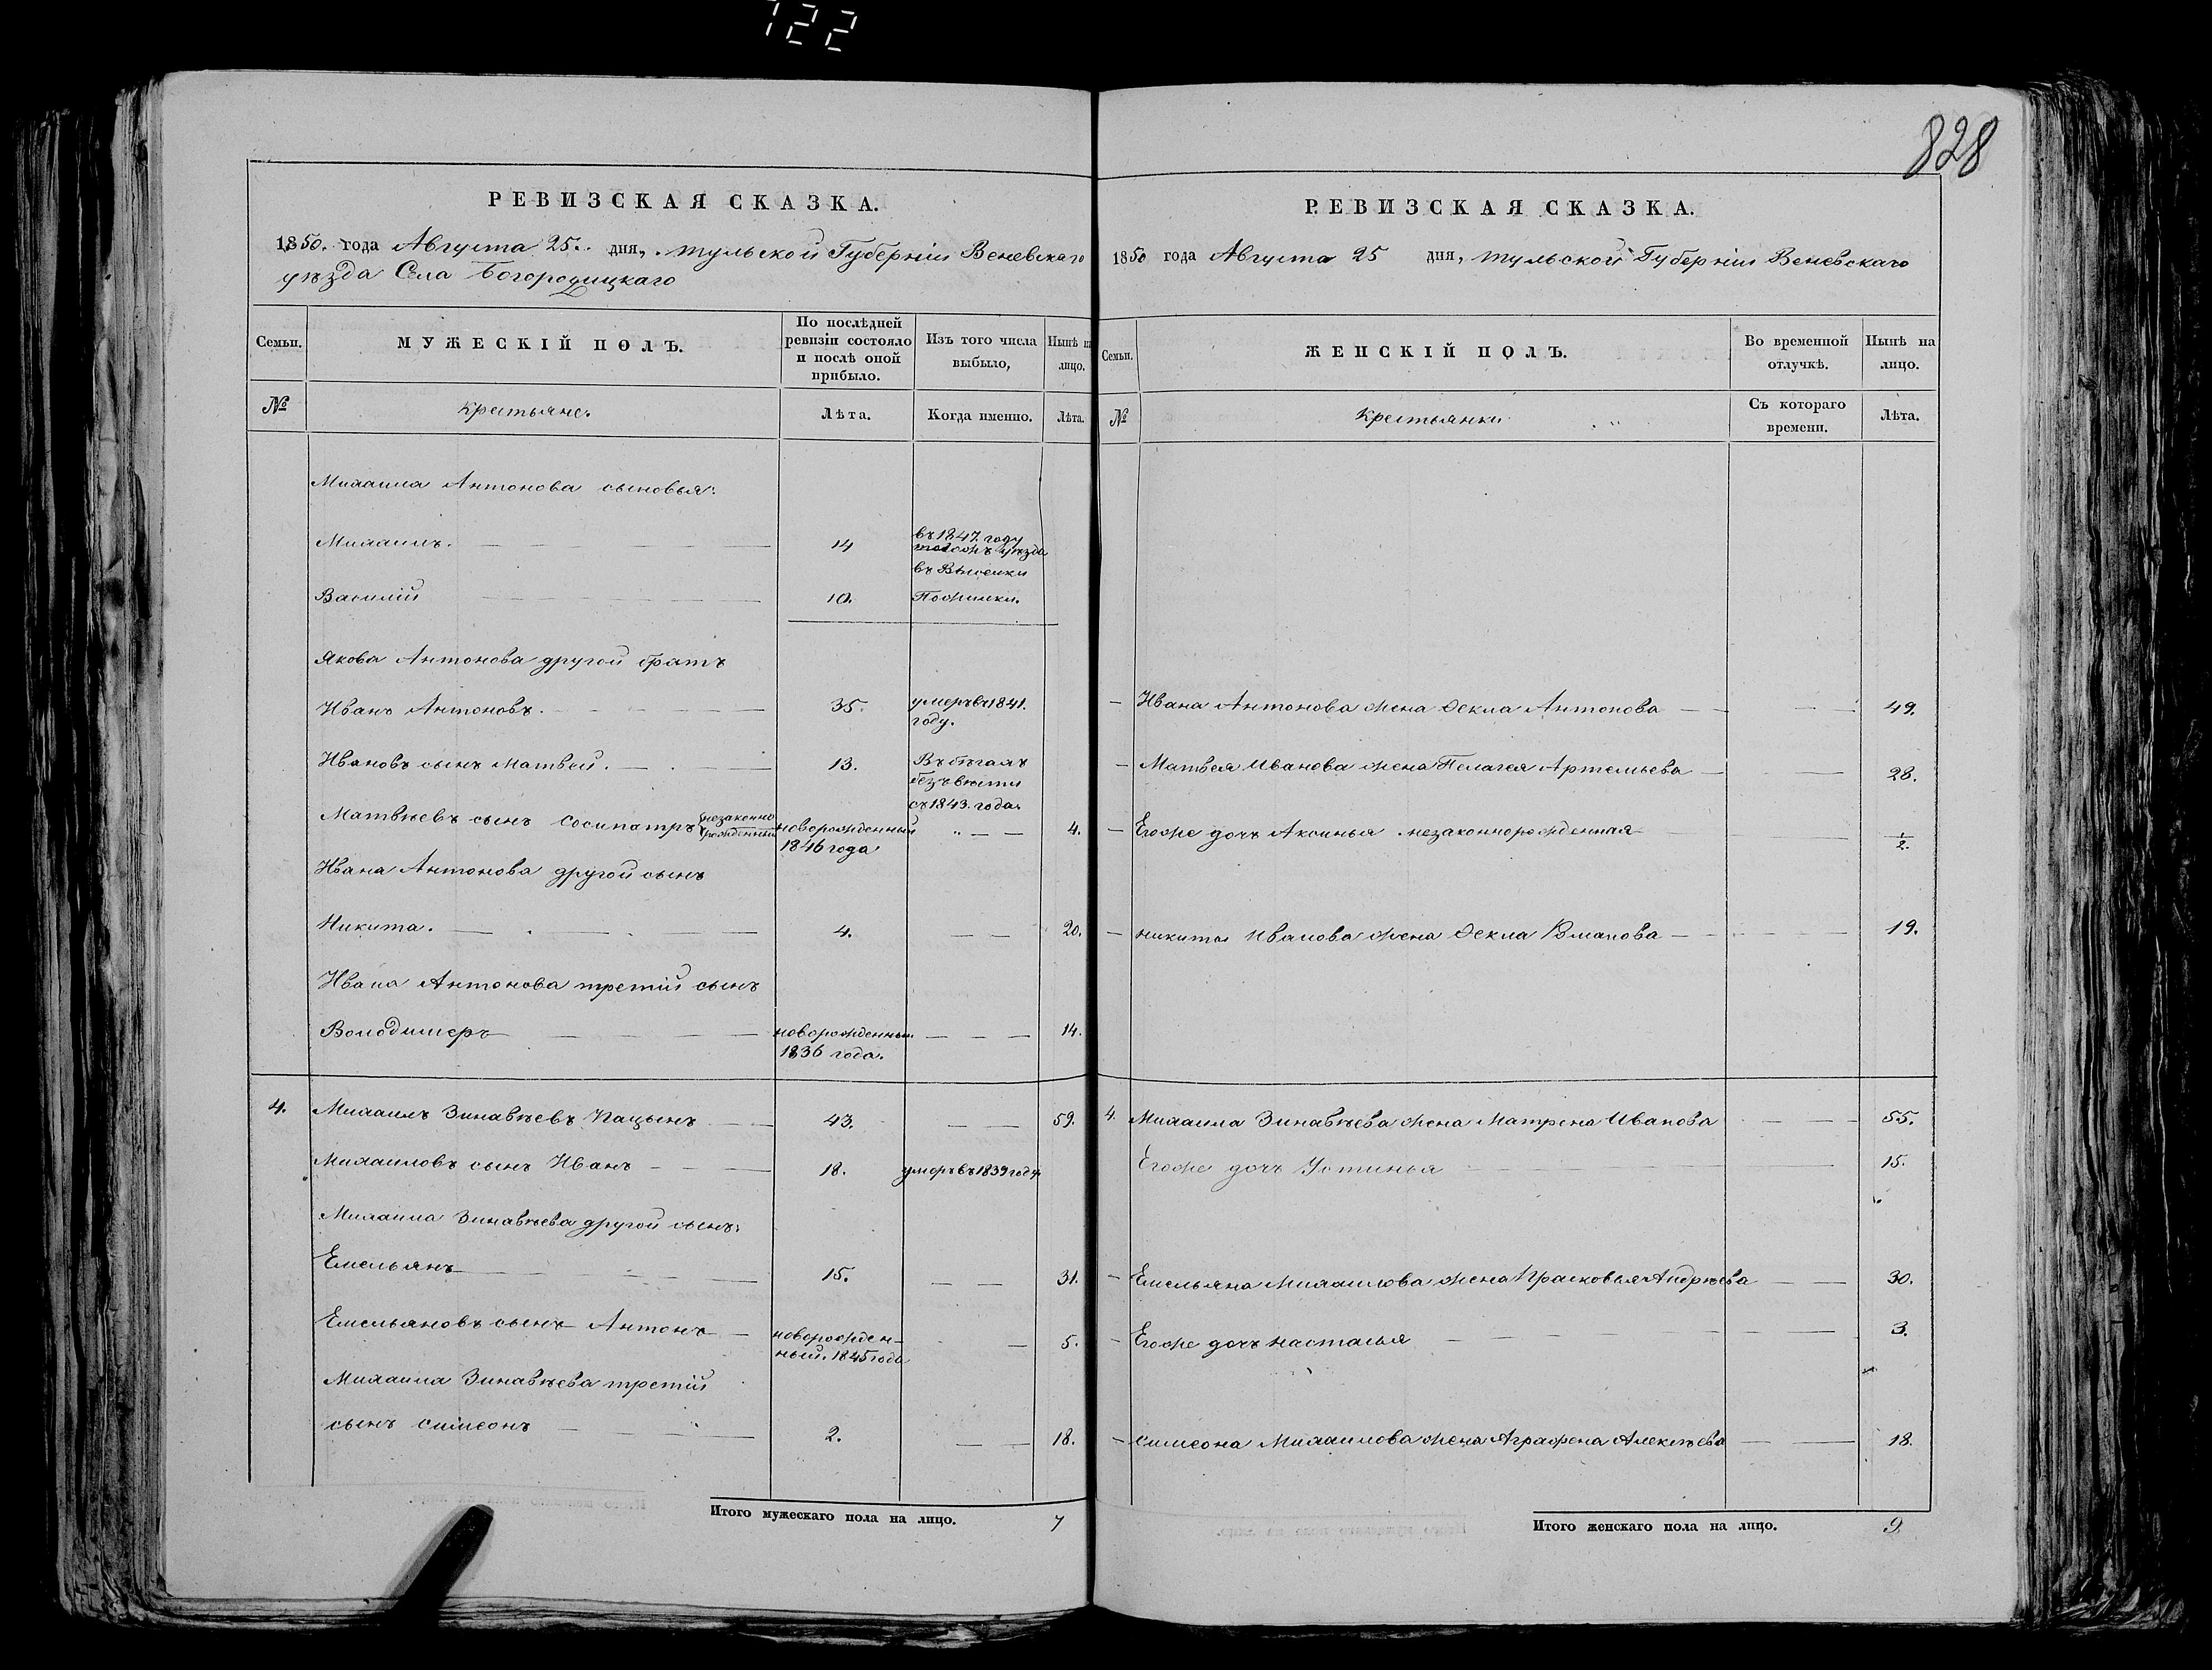 722
828
РЕВИЗСКАЯ СКАЗКА.
1850. года Августа 25. дня, Тульской Губерніи Веневскаго
уѣзда Села Богородицкаго
Семьи.
МУЖЕСКІЙ ПОЛЪ.
По послѣдней
ревизіи состояло
и послѣ оной
прибыло.
Изъ того числа
выбыло,
Нынѣ на
лицо.
№
Крестьяне.
Лѣта.
Когда именно.
Лѣта.
Михаила Антонова сыновья:
Михаилъ. 14 въ 1847. году
уѣзда
въ Выселки
Василій 10.
Якова Антонова другой братъ
Иванъ Антоновъ. 35. умеръ въ 1841.
году.
Ивановъ сынъ Матвей. 13. Въ бѣгахъ
безъ вѣсти
съ 1843. года
Матвѣевъ сынъ Сосипатръ незаконно
рожденный новорожденный 4.
1846 года
Ивана Антонова другой сынъ
Никита. 4. 20.
Ивана Антонова третій сынъ
Володимеръ новорожденный 14.
1836 года.
4. Михаилъ Зинавѣевъ Кацынъ 43. 59.
Михаиловъ сынъ Иванъ 18. умеръ въ 1839 году
Михаила Зинавѣева другой сынъ:
Емельянъ 15. 31.
Емельяновъ сынъ Антонъ новорожден-
ный. 1845 года 5.
Михаила Зинавѣева третій
сынъ Симеонъ 2. 18.
Итого мужескаго пола на лицо. 7
РЕВИЗСКАЯ СКАЗКА.
1850 года Августа 25 дня, Тульской Губерніи Веневскаго
Семьи.
ЖЕНСКІЙ ПОЛЪ.
Во временной
отлучкѣ.
Нынѣ на
лицо.
№
Крестьянки
Съ котораго
времени.
Лѣта.
Ивана Антонова жена Фекла Антонова 49.
Матвея Иванова жена Пелагея Артемьева 28.
Егоже дочь Аксинья незаконнорожденная 1/2.
Никиты Иванова жена Фекла Романова 19.
4. Михаила Зинавѣева жена Матрена Иванова 55.
Егоже дочь Устинья 15.
Емельяна Михаилова жена Прасковья Андрѣева 30.
Егоже дочь Настасья 3.
Симеона Михаилова жена Аграфена Алексѣева 18.
Итого женскаго пола на лицо. 9